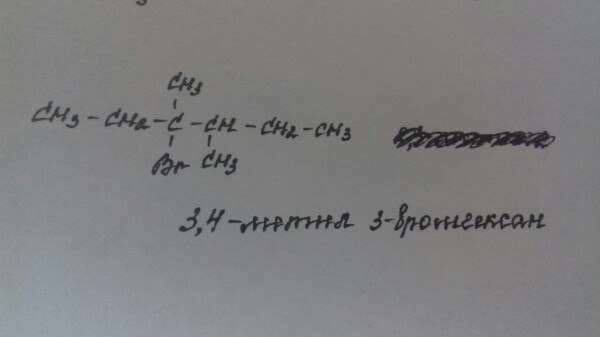 CH3
CH3 - CH2 - C - CH - CH2 - CH3
Br CH3
3,4-метил 3-бромгексан